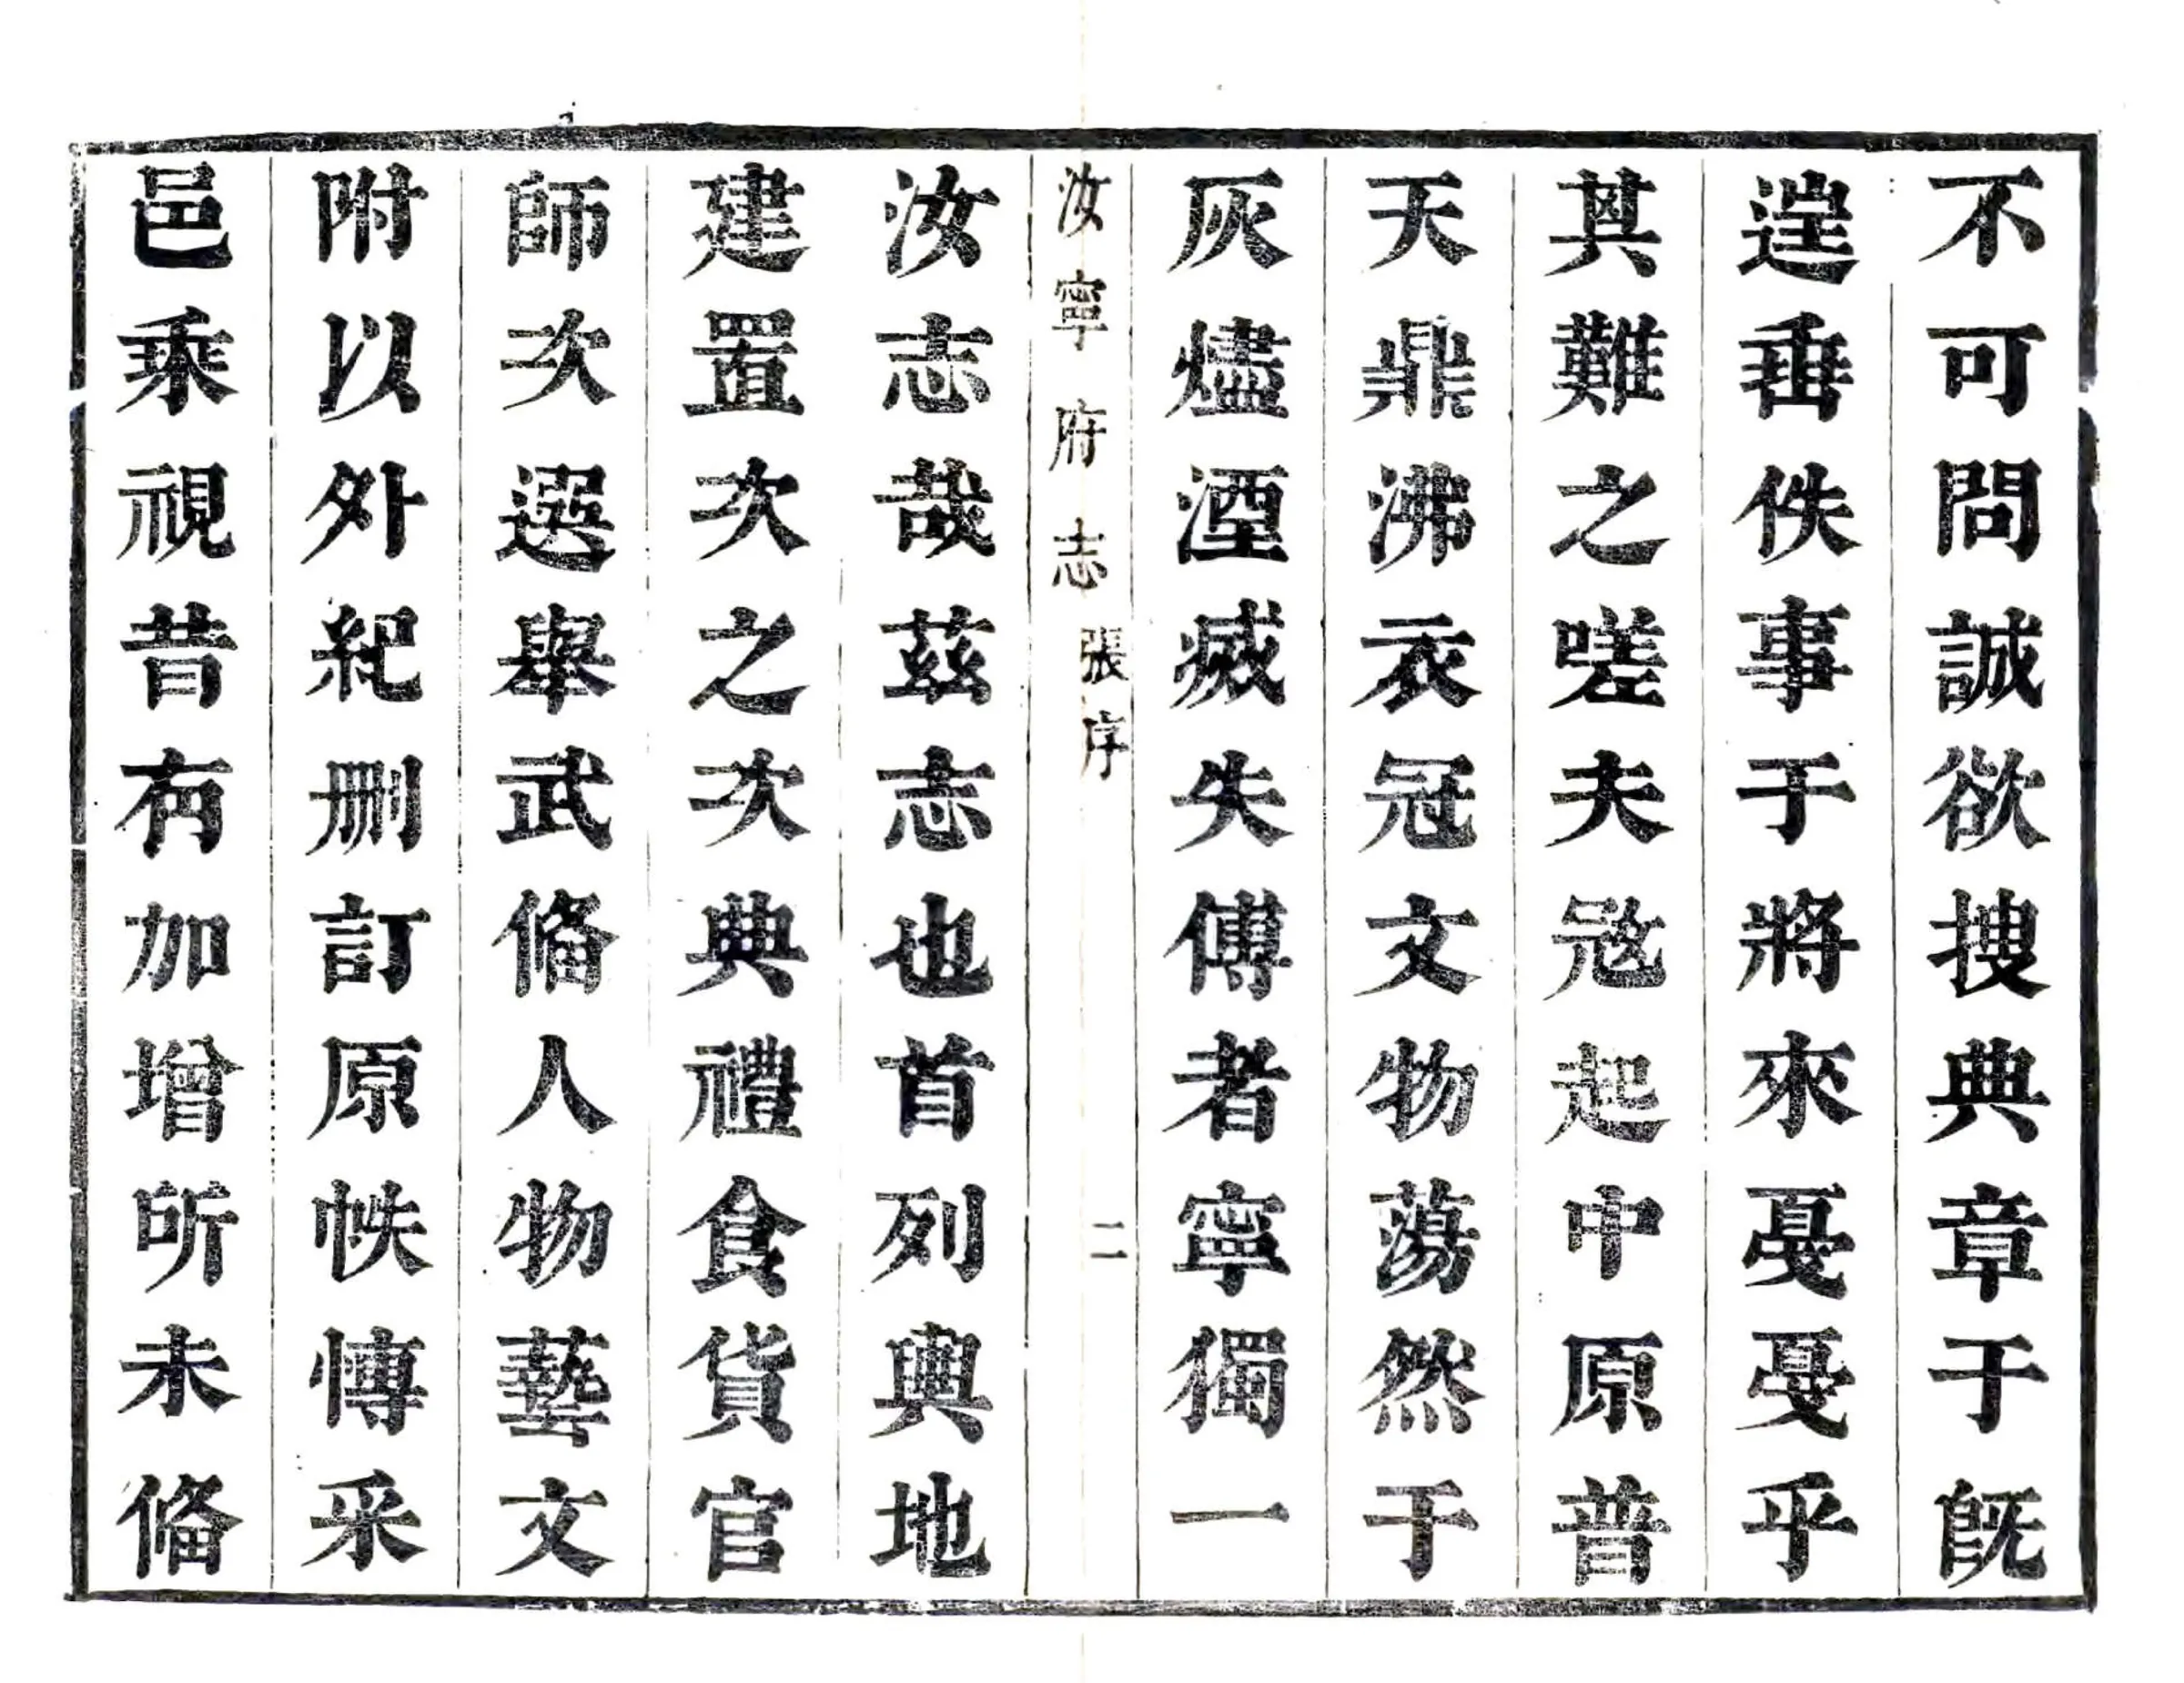 不可問誠欲搜典章于旣
遑垂佚事于將來戞戞乎
其難之嗟夫寇起中原普
天鼎沸衣冠文物蕩然于
灰燼湮滅失傳者寧獨一
汝寧府志 張序 二
汝志哉茲志也首列輿地
建置次之次典禮食貨官
師次選舉武偹人物藝文
附以外紀删訂原帙愽采
邑乘視昔有加增所未偹